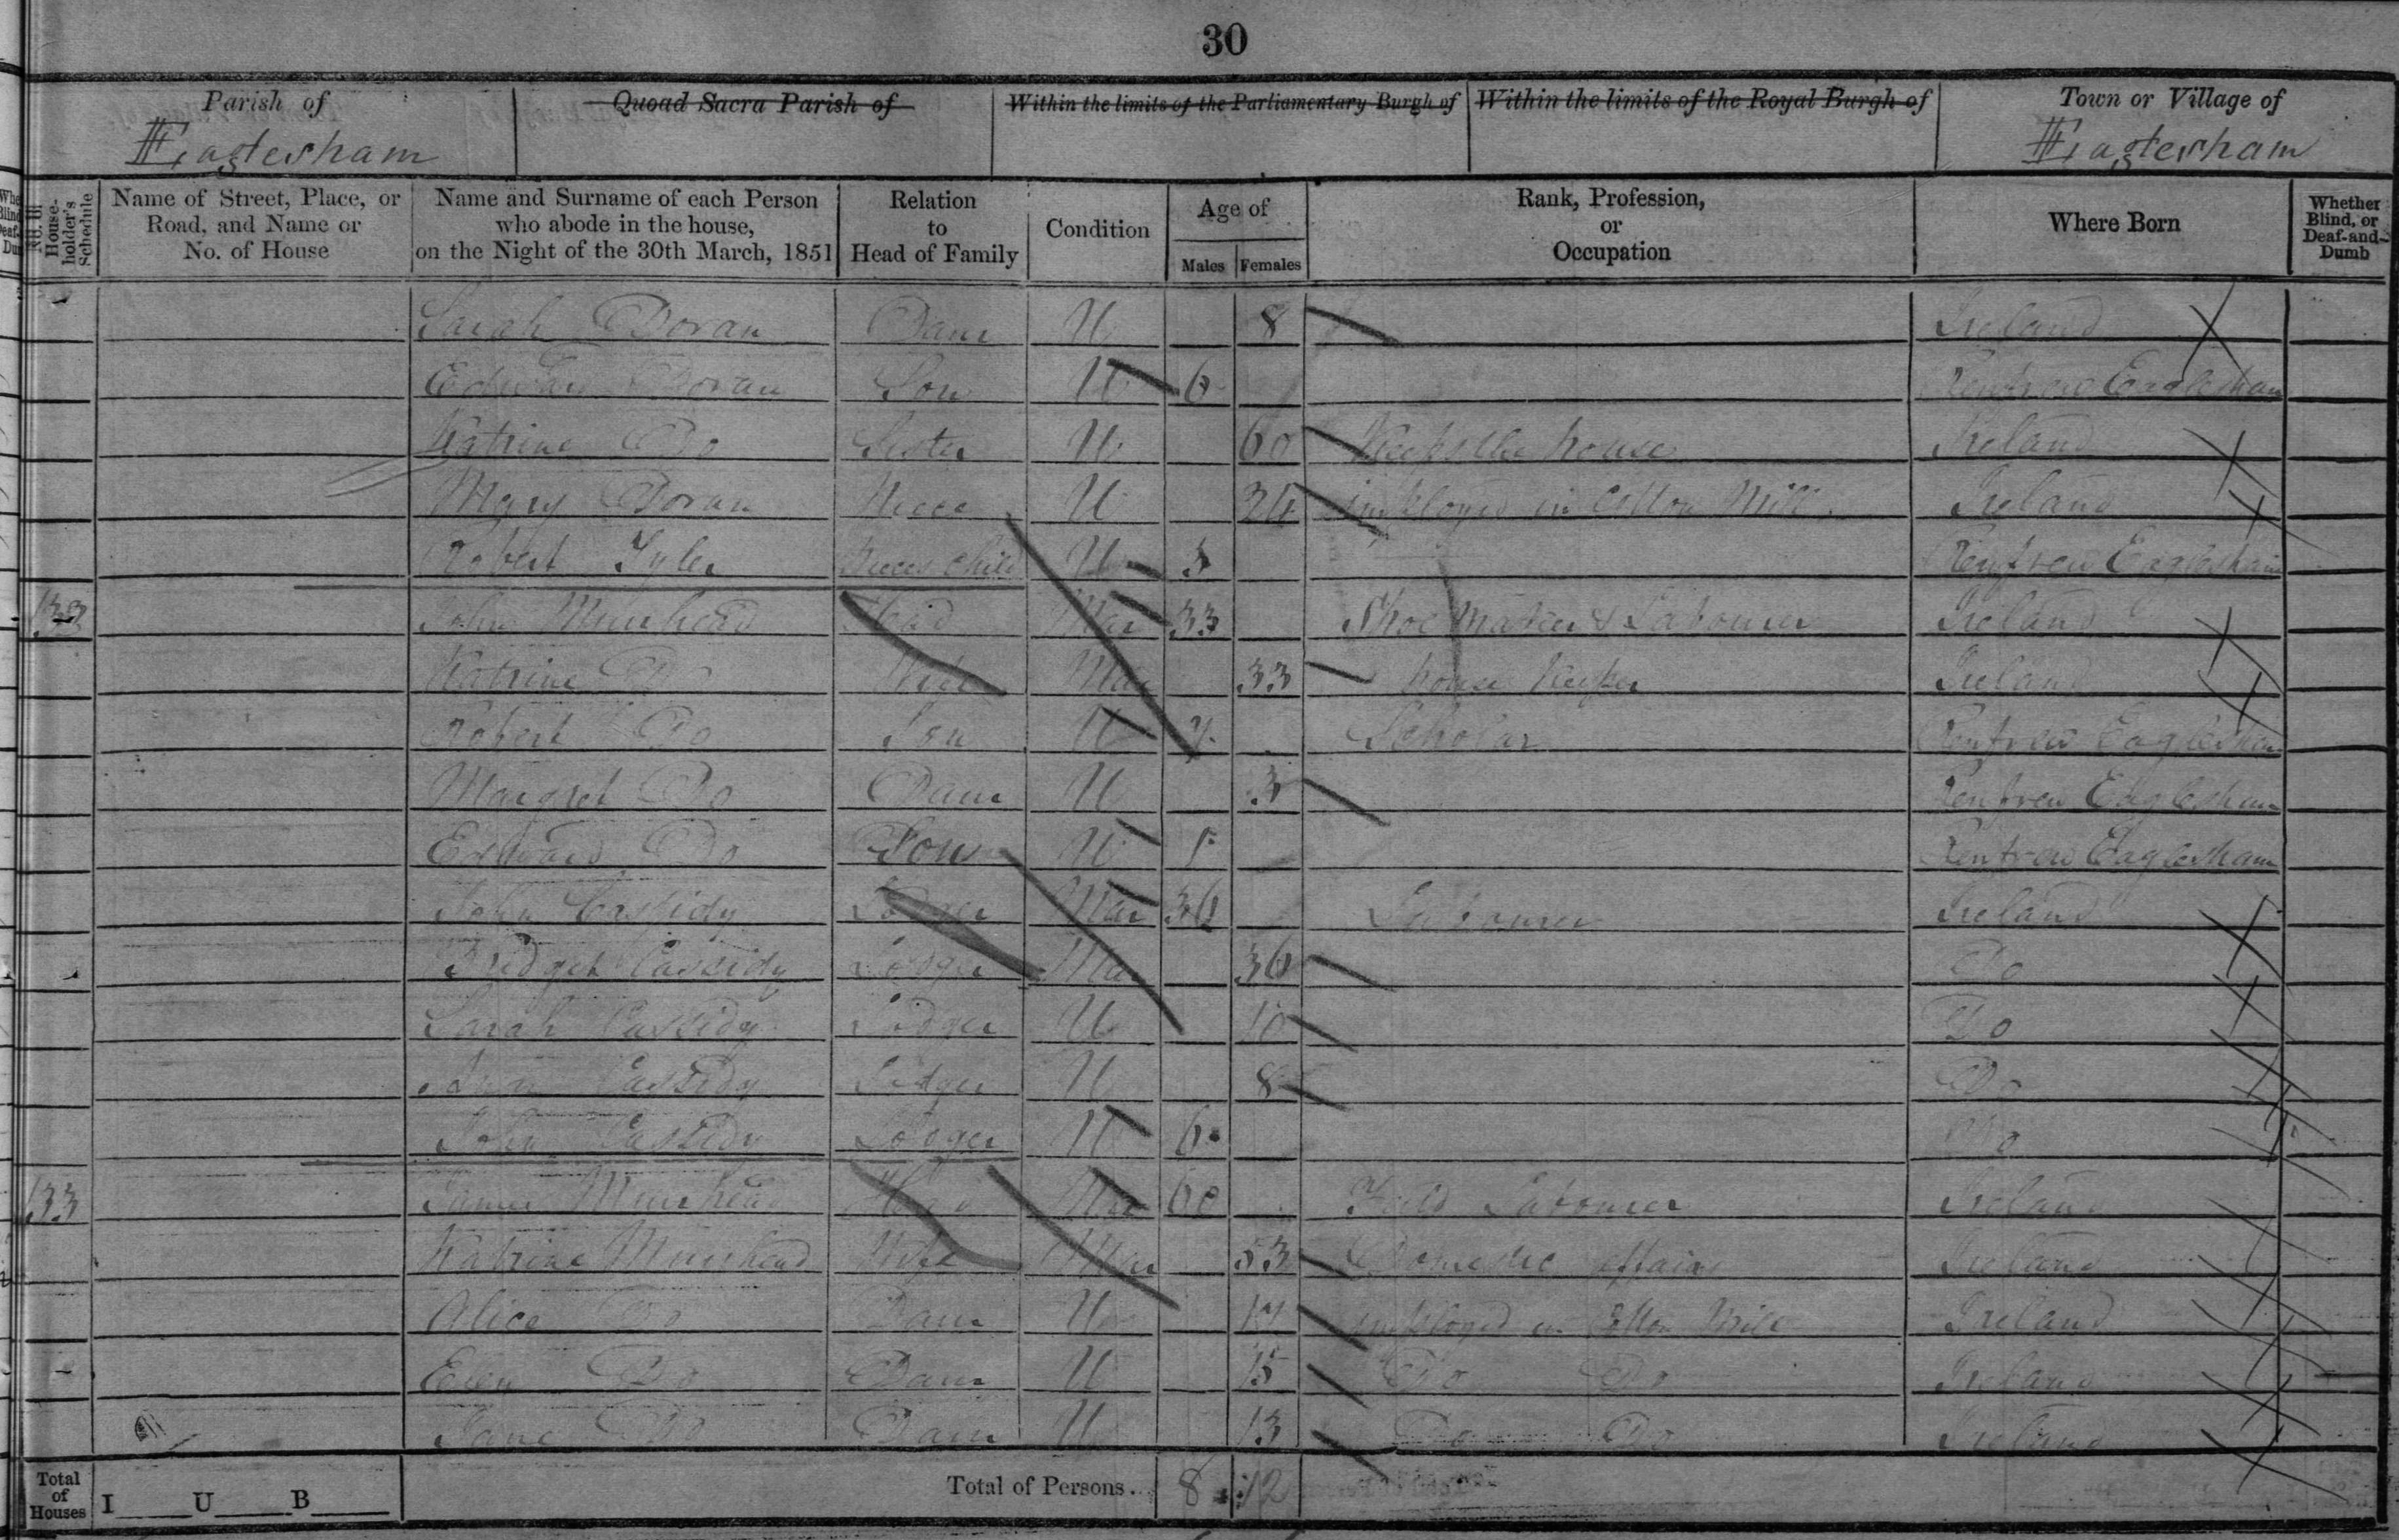 30
Parish of Quoad Sacra Parish of Within the limits of the Parliamentary Burgh of Within the limits of the Royal Burgh of Town or Village of
Eaglesham Eaglesham
No. of House-holder's Schedule Name of Street, Place, or Road, and Name or No. of House Name and Surname of each Person who abode in the house, on the Night of the 30th March, 1851 Relation to Head of Family Condition Age of Males Females Rank, Profession, or Occupation Where Born Whether Blind, or Deaf-and-Dumb
Sarah Doran Daur U 8 Ireland
Edward Doran Son U 6 Renfrew Eaglesham
Katrine Do Sister U 60 Keeps the house Ireland
Mary Doran Niece U 24 imployed in Cotton Mill Ireland
Robert Tyler Nieces Child U 5 Renfrew Eaglesham
132 John Muirhead Head Mar 33 Shoe Maker & Labourer Ireland
Katrine Do Wife Mar 33 house Keeper Ireland
Robert Do Son U Scholar Renfrew Eaglesham
Margret Do Daur U 3 Renfrew Eaglesham
Edward Do Son U 1 Renfrew Eaglesham
John Cassidy Lodger Mar 36 Labourer Ireland
Bridget Cassidy Lodger Mar 36 Do
Sarah Cassidy Lodger U 10 Do
Cassidy Lodger U 8 Do
John Cassidy Lodger U 6 Do
133 James Muirhead Head Mar 60 Field Labourer Ireland
Katrine Muirhead Wife Mar 53 Domestic affairs Ireland
Alice Do Daur U 17 imployed in Cotton Mill Ireland
Elen Do Daur U 15 Do Do Ireland
Jane Do Daur U 13 Do Do Ireland
Total of Houses I U B Total of Persons... 8 12